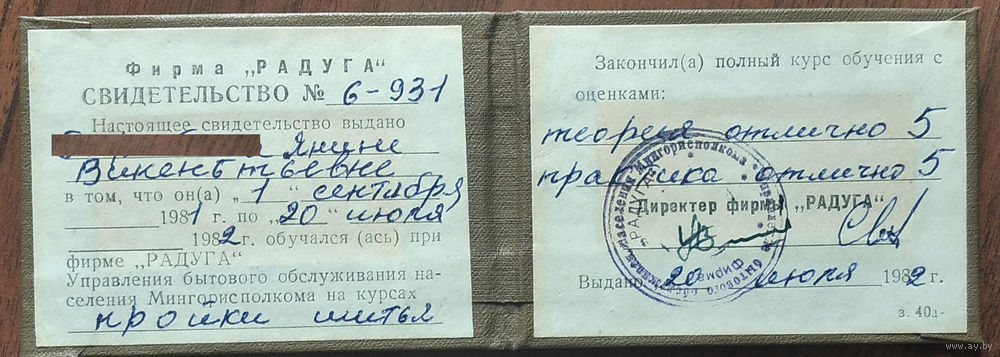 Фирма „РАДУГА“
СВИДЕТЕЛЬСТВО № 6-931
Настоящее свидетельство выдано
Янине
Викентьевне
в том, что он(а) „1“ сентября
1981 г. по „20“ июля
1982 г. обучался (ась) при
фирме „РАДУГА“
Управления бытового обслуживания на-
селения Мингорисполкома на курсах
кройки шитья
Закончил(а) полный курс обучения с
оценками:
теория отлично 5
практика отлично 5
Директор фирмы „РАДУГА“
Выдано 20 июля 1982 г.
з. 40д-
населения Мингорисполкома
бытового
Фирма
"РАДУГА"
www.ay.by